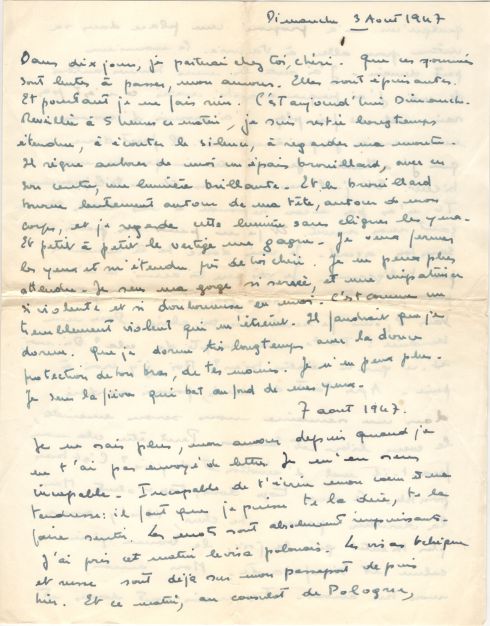 Dimanche 3 Aout 1947
Dans dix jours, je partirai chez toi, chéri. Que ces journées
sont lentes à passer, mon amour. Elles sont épuisantes.
Et pourtant je ne fais rien. C'est aujourd'hui Dimanche.
Réveillée à 5 heures ce matin, je suis restée longtemps
étendue, à écouter le silence, à regarder ma montre.
Il règne autour de moi un épais brouillard, avec en
son centre, une lumière brillante. Et le brouillard
tourne lentement autour de ma tête, autour de mon
corps, et je regarde cette lumière sans cligner les yeux.
Et petit à petit le vertige me gagne. Je veux fermer
les yeux et m'étendre près de toi chéri. Je ne peux plus
attendre. Je sens ma gorge si serrée, et une impatience
si violente et si douloureuse en moi. C'est comme un
tremblement violent qui m'étreint. Il faudrait que je
dorme. Que je dorme très longtemps avec la douce
protection de ton bras, de tes mains. Je n'en peux plus.
Je sens la fièvre qui bat au fond de mes yeux.
7 aout 1947.
Je ne sais plus, mon amour depuis quand je
ne t'ai pas envoyé de lettre. Je m'en sens
incapable. Incapable de t'écrire mon coeur et ma
tendresse: il faut que je puisse te la dire, te la
faire sentir. Les mots sont absolument impuissants.
J'ai pris ce matin le visa polonais. Les visas tchèque
et russe sont déjà sur mon passeport depuis
hier. Et ce matin, au consulat de Pologne,